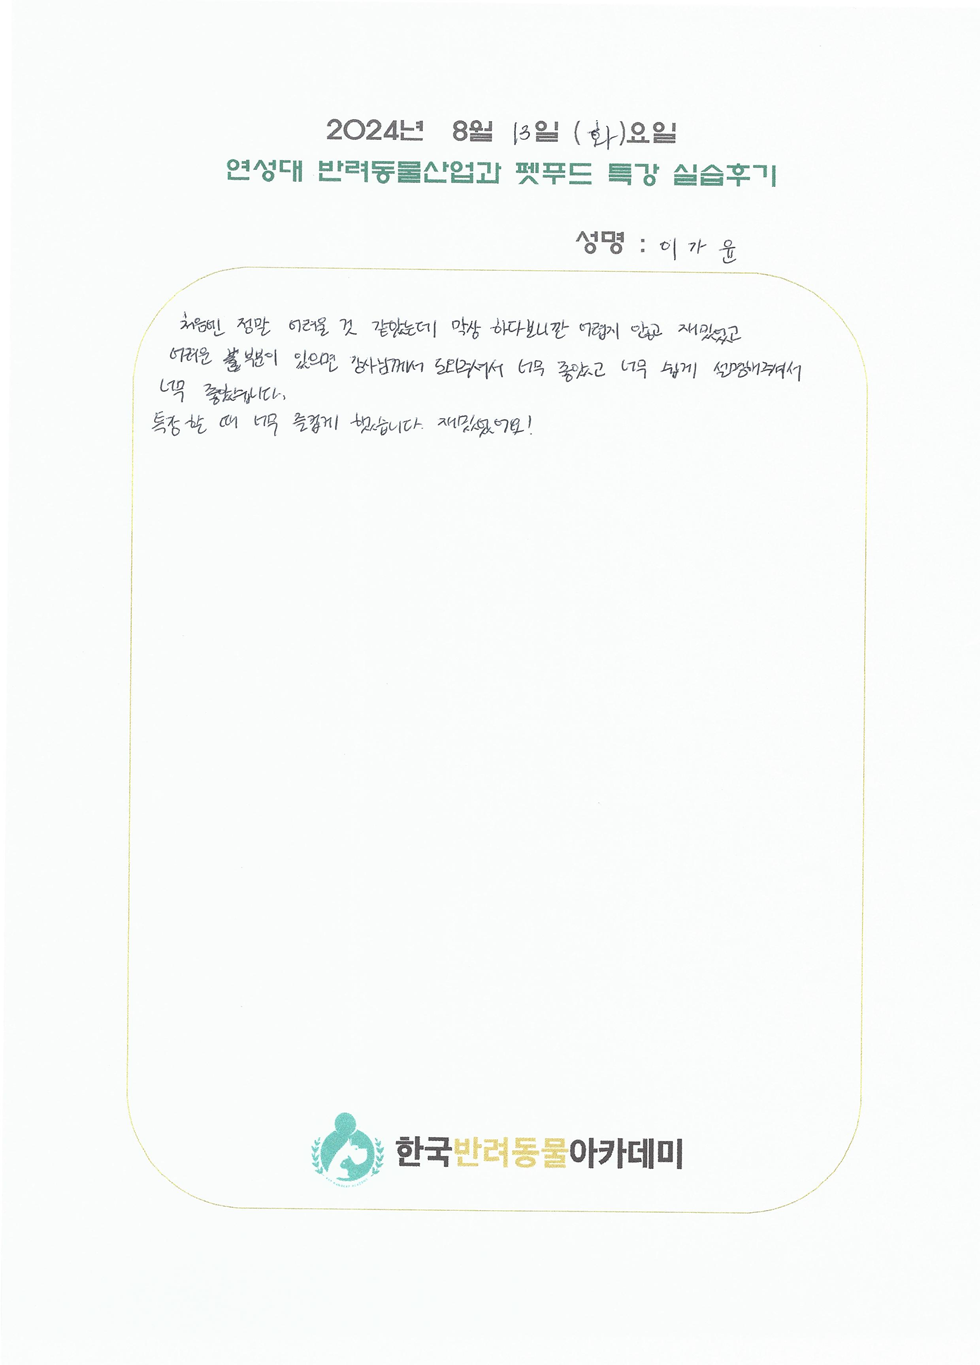 2024년 8월 13일 (화)요일
연성대 반려동물산업과 펫푸드 특강 실습후기
성명 : 이가윤
처음엔 정말 어려울 것 같았는데 막상 하다보니깐 어렵지 않고 재밌었고
어려운 부분이 있으면 강사님께서 도와주셔서 너무 좋았고 너무 쉽게 설명해주셔서
너무 좋았습니다.
특강 할 때 너무 즐겁게 했습니다. 재밌었어요!
한국반려동물아카데미